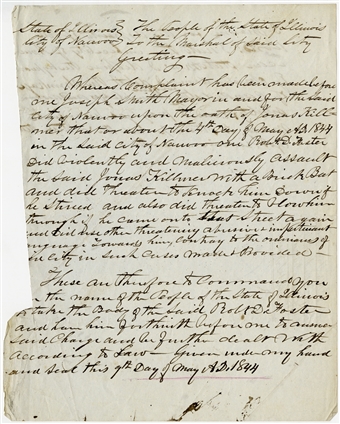 State of Illinois } The People of the State of Illinois
City of Nauvoo } To the Marshal of Said City
Greeting—
Whereas Complaint has been made before
me Joseph Smith Mayor in and for the Said
City of Nauvoo upon the oath of Jonas Kill
mer that or about the 7th Day of May A.D. 1844
in the Said City of Nauvoo one Robt D. Foster
did violently and maliciously assault
the Said Jonas Killmer with a Brick Bat
and did threaten to knock him down if
he Stired and also did threaten to
through if he came onto that Street again
and did use other threatening abusive & impertinent
nguage towards him contrary to the ordinances of
id City in Such Cases made & Provided—
These are therefore to Command you
n the name of the People of the State of Illinois
to take the Body of the Said Robt D. Foster
and have him forthwith before me to answer
Said Charge and be further dealt with
according to Law— Given under my hand
and seal this 9th Day of May A.D. 1844